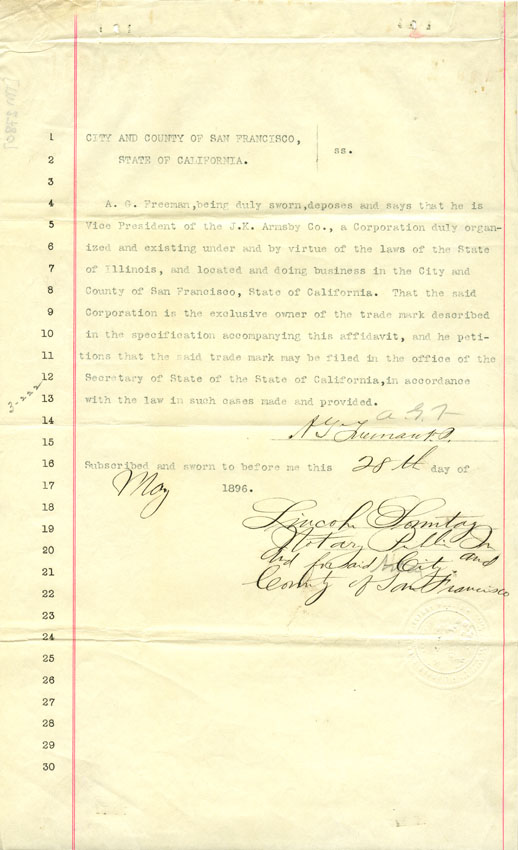 1 CITY AND COUNTY OF SAN FRANCISCO,
ss.
2 STATE OF CALIFORNIA.
3
4 A. G. Freeman,being duly sworn,deposes and says that he is
5 Vice President of the J.K. Armsby Co., a Corporation duly organ-
6 ized and existing under and by virtue of the laws of the State
7 of Illinois, and located and doing business in the City and
8 County of San Francisco, State of California. That the said
9 Corporation is the exclusive owner of the trade mark described
10 in the specification accompanying this affidavit, and he peti-
11 tions that the said trade mark may be filed in the office of the
12 Secretary of State of the State of California,in accordance
3-222
13 with the law in such cases made and provided.
14 A. G. F.
15 A G Freeman
16 Subscribed and sworn to before me this 28th day of
17 May 1896.
18 Lincoln Sonntag
19 Notary Public In
20 and for said City and
21 County of San Francisco
22
23
24
25
26
27
28
29
30